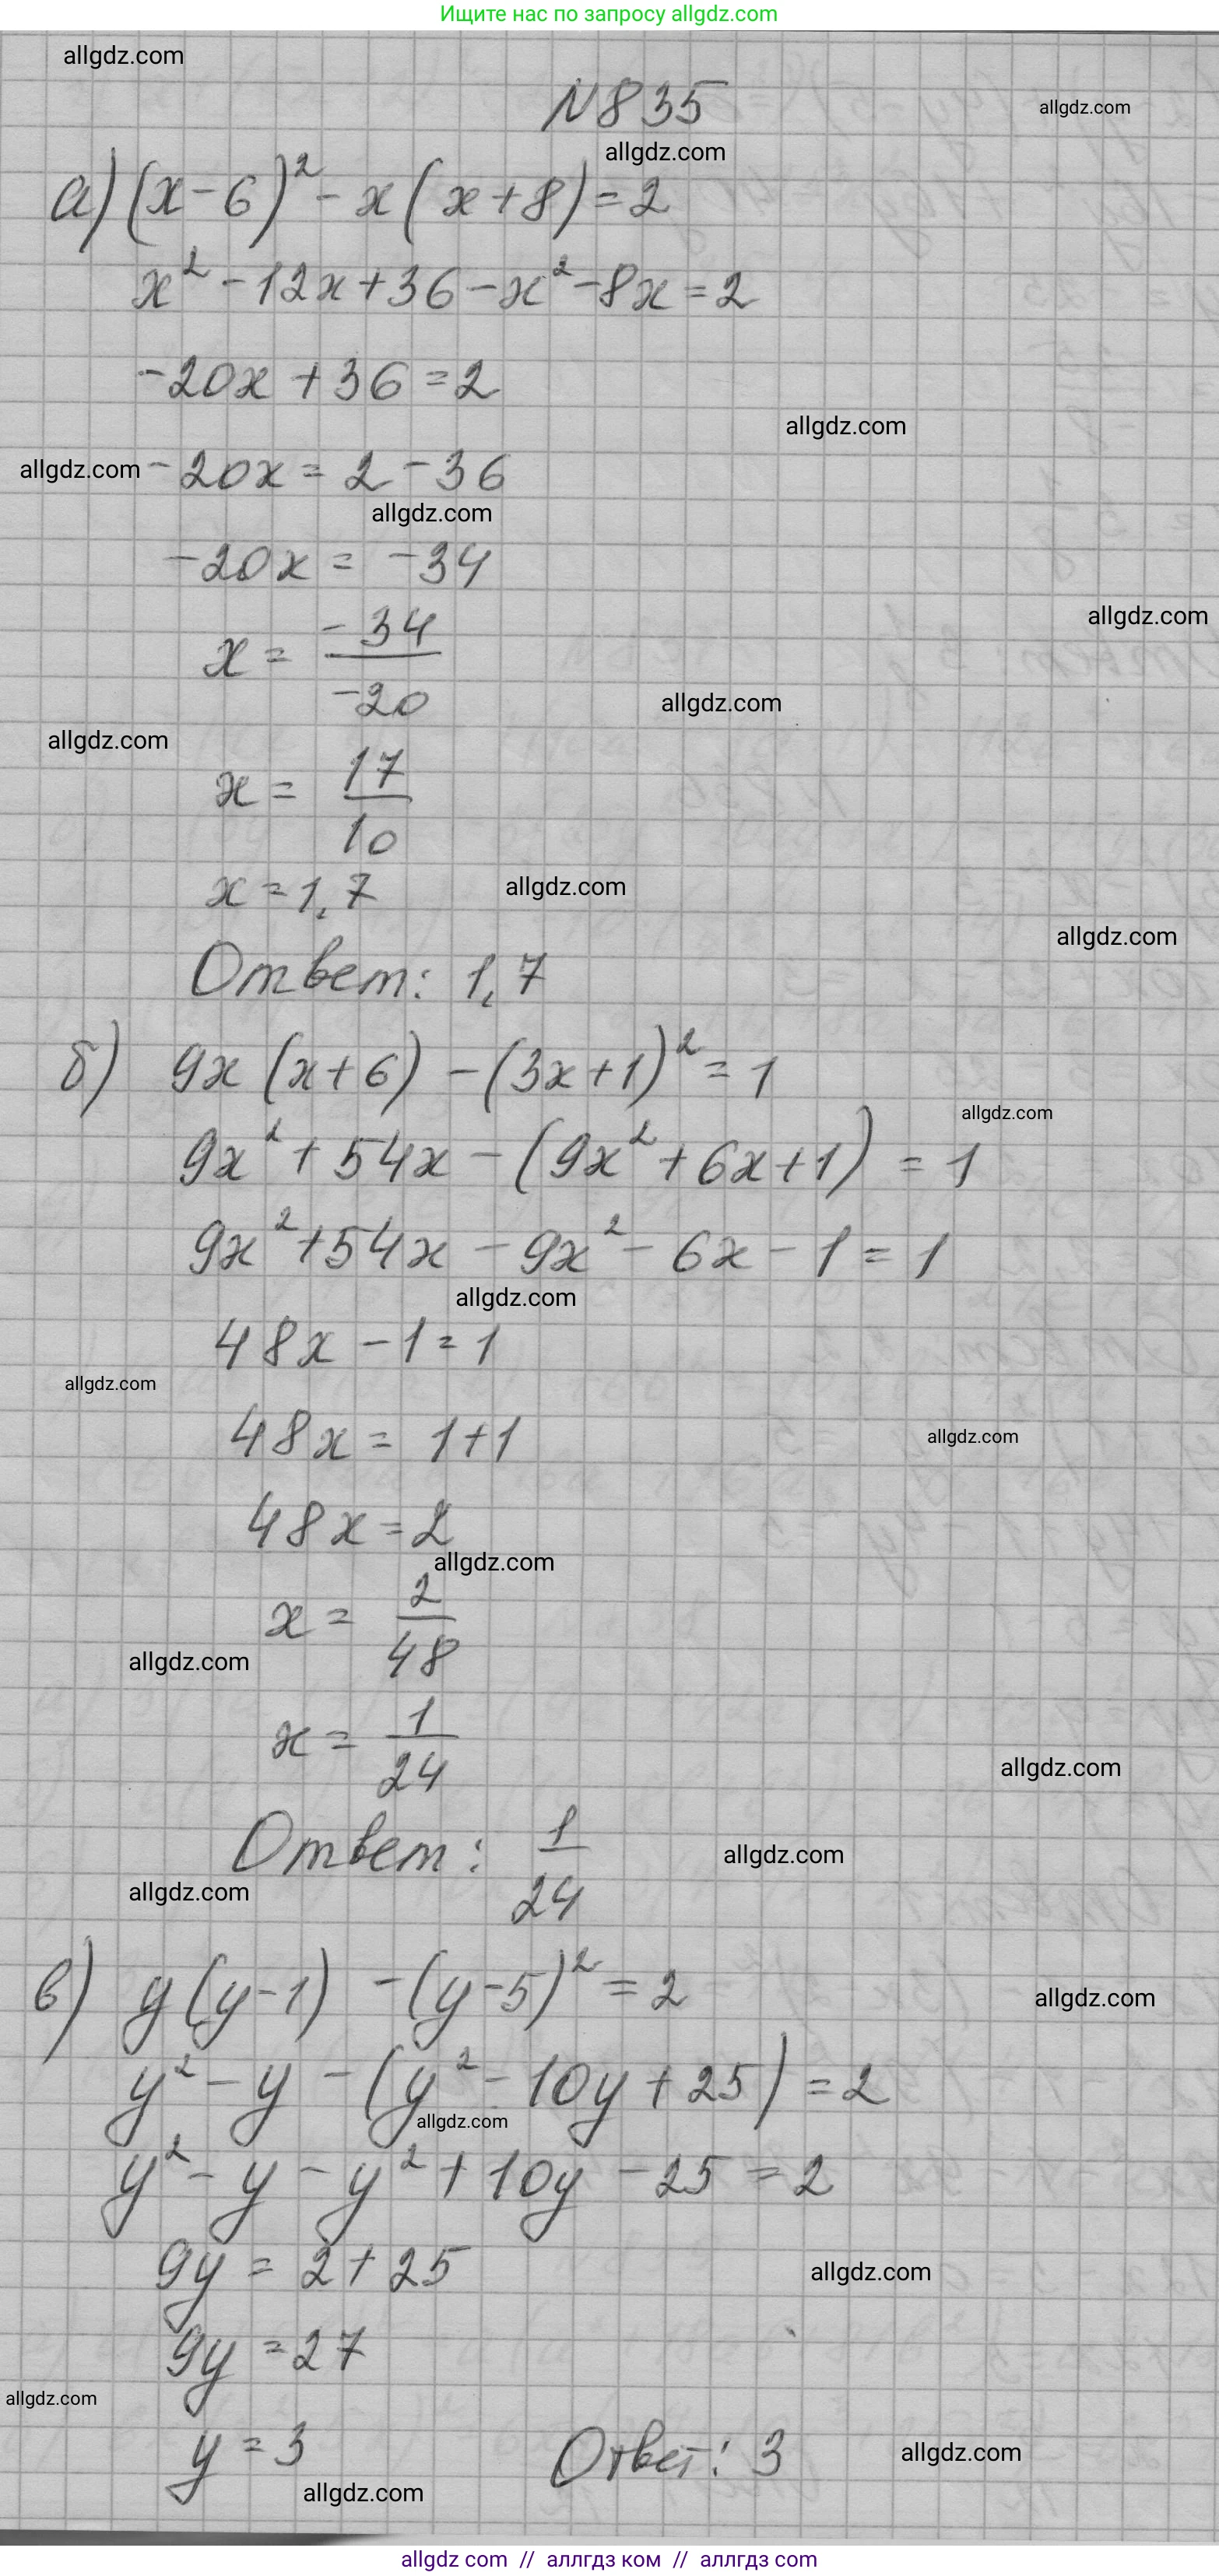 Ищите нас по запросу allgdz.com
allgdz.com
№835
allgdz.com
allgdz.com
а) (x-6)²-x(x+8)=2
x²-12x+36-x²-8x=2
-20x+36=2
allgdz.com
allgdz.com
-20x=2-36
allgdz.com
-20x=-34
allgdz.com
x=-34/-20
allgdz.com
allgdz.com
x=17/10
x=1,7
allgdz.com
allgdz.com
Ответ: 1,7
б) 9x(x+6)-(3x+1)²=1
allgdz.com
9x²+54x-(9x²+6x+1)=1
9x²+54x-9x²-6x-1=1
allgdz.com
48x-1=1
allgdz.com
48x=1+1
allgdz.com
48x=2
allgdz.com
x=2/48
allgdz.com
x=1/24
allgdz.com
Ответ: 1/24
allgdz.com
allgdz.com
в) y(y-1)-(y-5)²=2
allgdz.com
y²-y-(y²-10y+25)=2
allgdz.com
y²-y-y²+10y-25=2
9y=2+25
allgdz.com
9y=27
allgdz.com
y=3 Ответ: 3
allgdz.com
allgdz.com
allgdz com // аллгдз ком // аллгтдз com